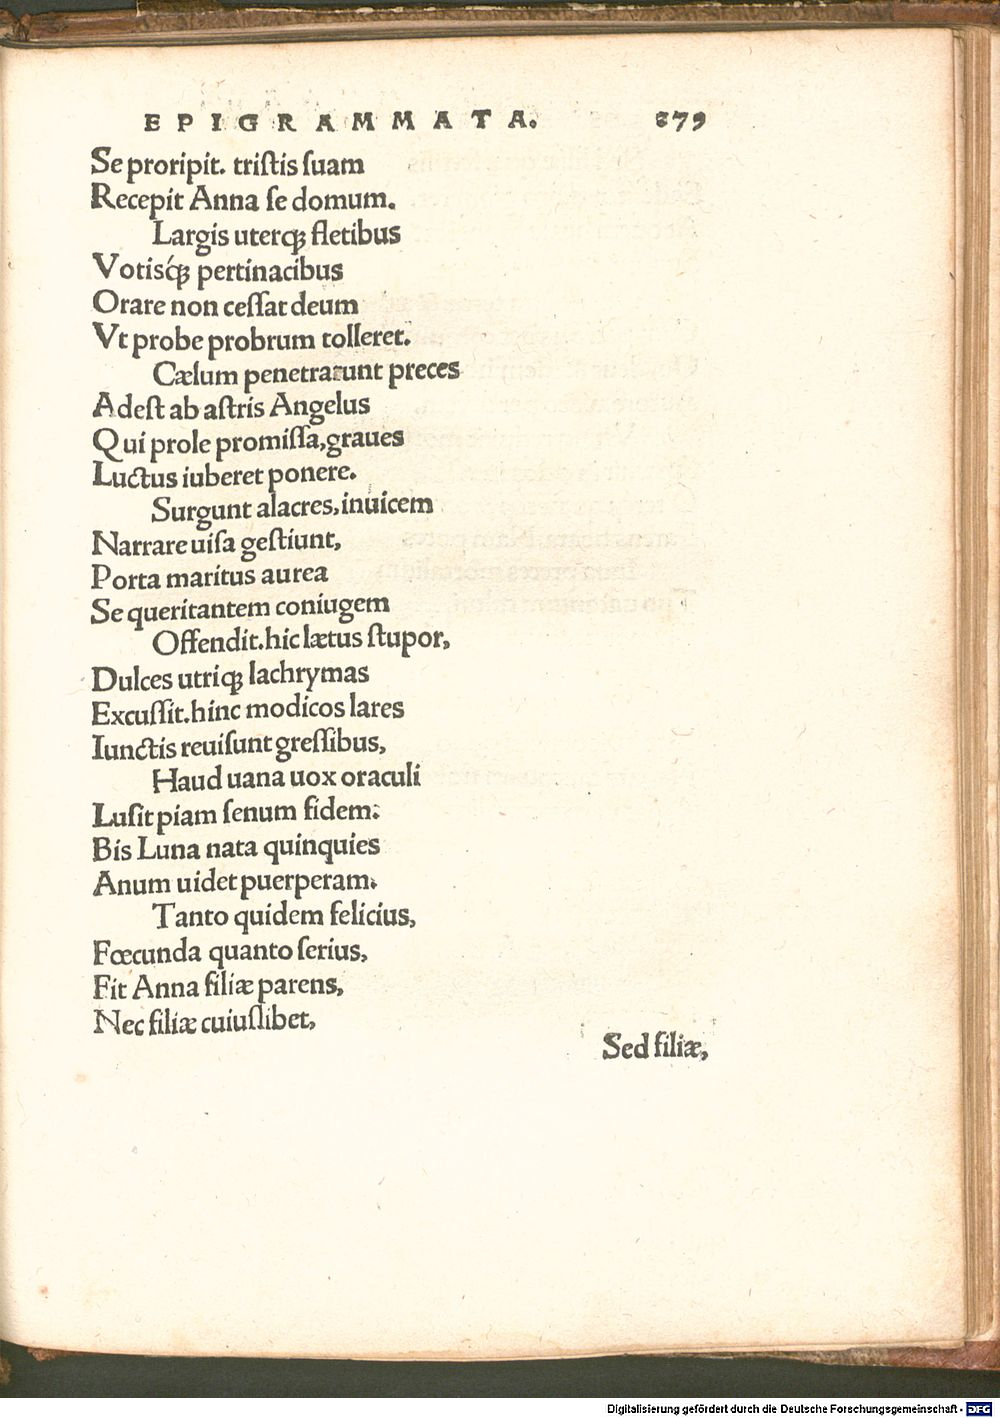 EPIGRAMMATA. 279
Se proripit. tristis suam
Recepit Anna se domum.
Largis uterq; fletibus
Votisq́; pertinacibus
Orare non cessat deum
Vt probe probrum tolleret.
Cælum penetrarunt preces
Adest ab astris Angelus
Qui prole promissa, graues
Luctus iuberet ponere.
Surgunt alacres, inuicem
Narrare uisa gestiunt,
Porta maritus aurea
Se queritantem coniugem
Offendit. hic lætus stupor,
Dulces utriq; lachrymas
Excussit. hinc modicos lares
Iunctis reuisunt gressibus,
Haud uana uox oraculi
Lusit piam senum fidem:
Bis Luna nata quinquies
Anum uidet puerperam.
Tanto quidem felicius,
Fœcunda quanto serius,
Fit Anna filiæ parens,
Nec filiæ cuiuslibet,
Sed filiæ,
Digitalisierung gefördert durch die Deutsche Forschungsgemeinschaft - DFG